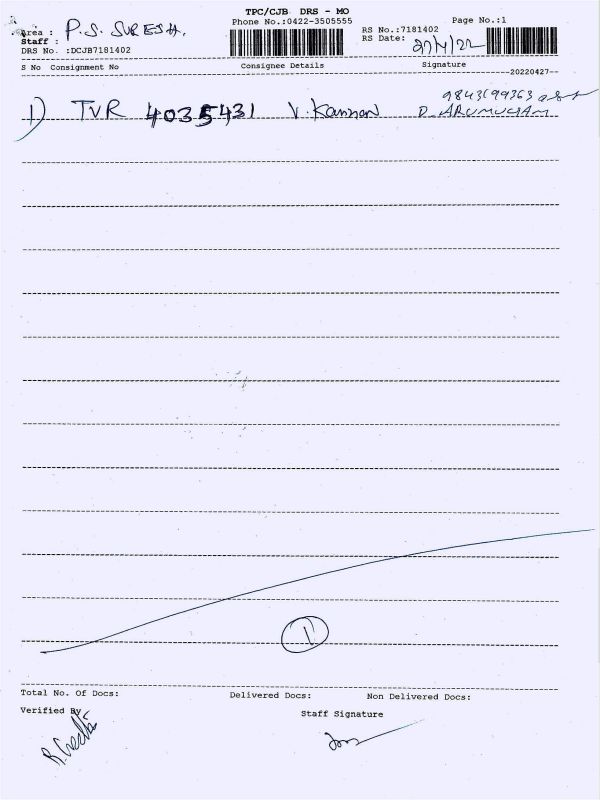 TPC/CJB DRS - MO
Phone No.:0422-3505555
Page No.:1
Area : P.S. SURESH.
Staff :
DRS No. :DCJB7181402
RS No.:7181402
RS Date: 27/4/22
S No Consignment No Consignee Details Signature
--20220427--
1) TVR 4035431 V. Kannan 9843199363
D. ARUMUGAM
1
Total No. Of Docs: Delivered Docs: Non Delivered Docs:
Verified By
Staff Signature